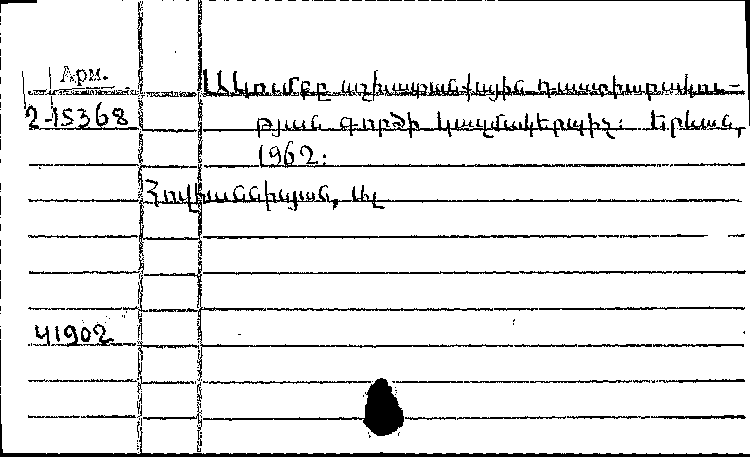 Арм.
2-15368
Ակումբը աշխատանքային դաստիարակու-
թյան գործի կազմակերպիչ: Երևան,
1962:
Հովհաննիսյան, Ալ
41902